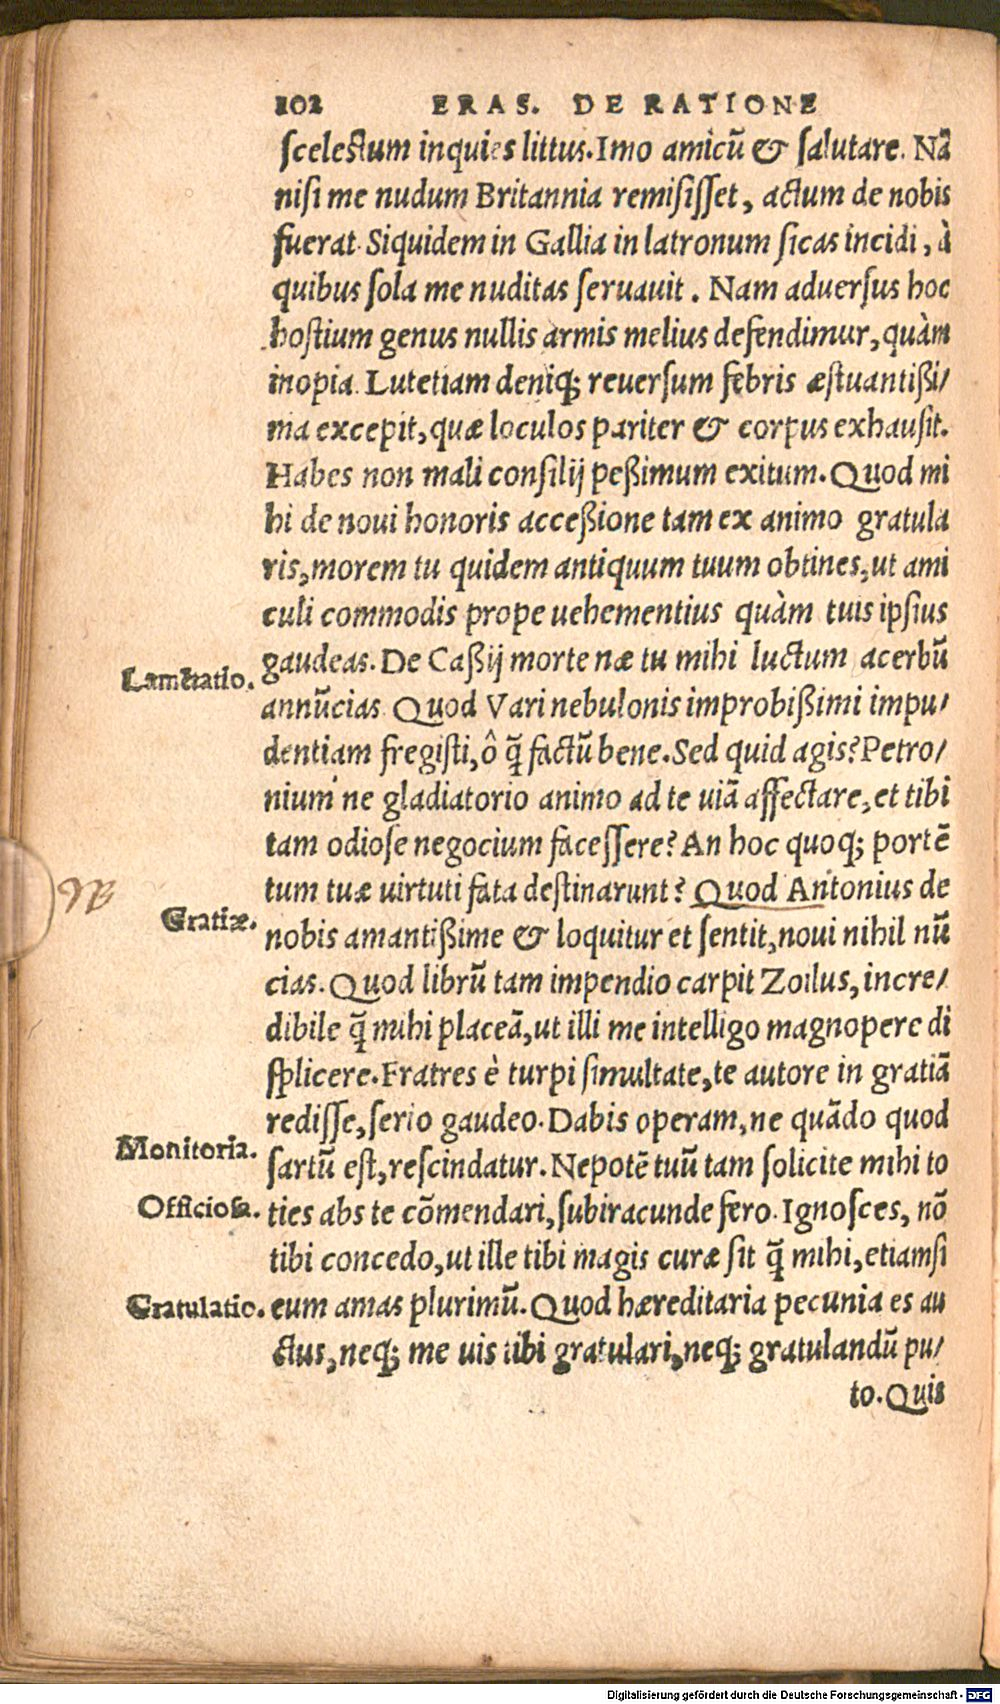 102 ERAS. DE RATIONE
scelestum inquies littus. Imo amicũ & salutare. Nã
nisi me nudum Britannia remisisset, actum de nobis
fuerat. Siquidem in Gallia in latronum sicas incidi, à
quibus sola me nuditas seruauit. Nam aduersus hoc
hostium genus nullis armis melius defendimur, quàm
inopia. Lutetiam deniq; reuersum febris æstuantißi/
ma excepit, quæ loculos pariter & corpus exhausit.
Habes non mali consilij peßimum exitum. Quod mi
hi de noui honoris acceßione tam ex animo gratula
ris, morem tu quidem antiquum tuum obtines, ut ami
culi commodis prope uehementius quàm tuis ipsius
gaudeas. De Caßij morte næ tu mihi luctum acerbũ
Lamẽtatio.
annũcias. Quod Vari nebulonis improbißimi impu/
dentiam fregisti, ô q̃ factũ bene. Sed quid agis? Petro/
nium ne gladiatorio animo ad te uiã affectare, et tibi
tam odiose negocium facessere? An hoc quoq; portẽ
tum tuæ uirtuti fata destinarunt? Quod Antonius de
NB
Gratiæ.
nobis amantißime & loquitur et sentit, noui nihil nũ
cias. Quod librũ tam impendio carpit Zoilus, incre/
dibile q̃ mihi placeã, ut illi me intelligo magnopere di
splicere. Fratres è turpi simultate, te autore in gratiã
redisse, serio gaudeo. Dabis operam, ne quãdo quod
Monitoria.
sartũ est, rescindatur. Nepotẽ tuũ tam solicite mihi to
Officiosa.
ties abs te cõmendari, subiracunde fero. Ignosces, nõ
tibi concedo, ut ille tibi magis curæ sit q̃ mihi, etiamsi
Gratulatio.
eum amas plurimũ. Quod hæreditaria pecunia es au
ctus, neq; me uis tibi gratulari, neq; gratulandũ pu/
to. Quis
Digitalisierung gefördert durch die Deutsche Forschungsgemeinschaft - DFG